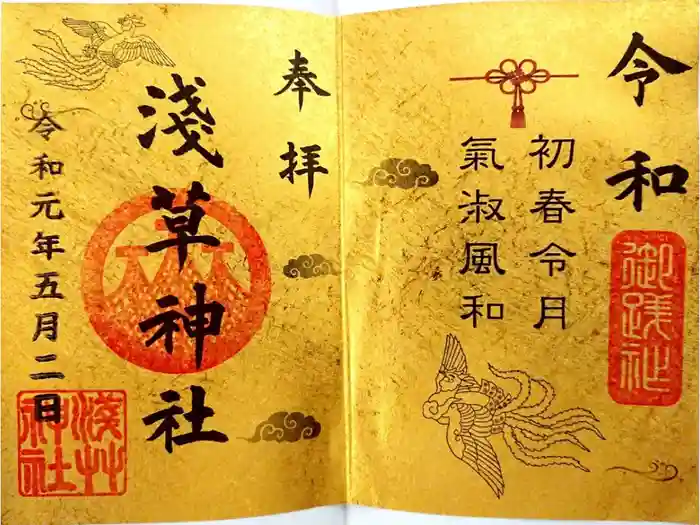 令和
初春令月
氣淑風和
奉拝
淺草神社
令和元年五月二日
淺艸
神社